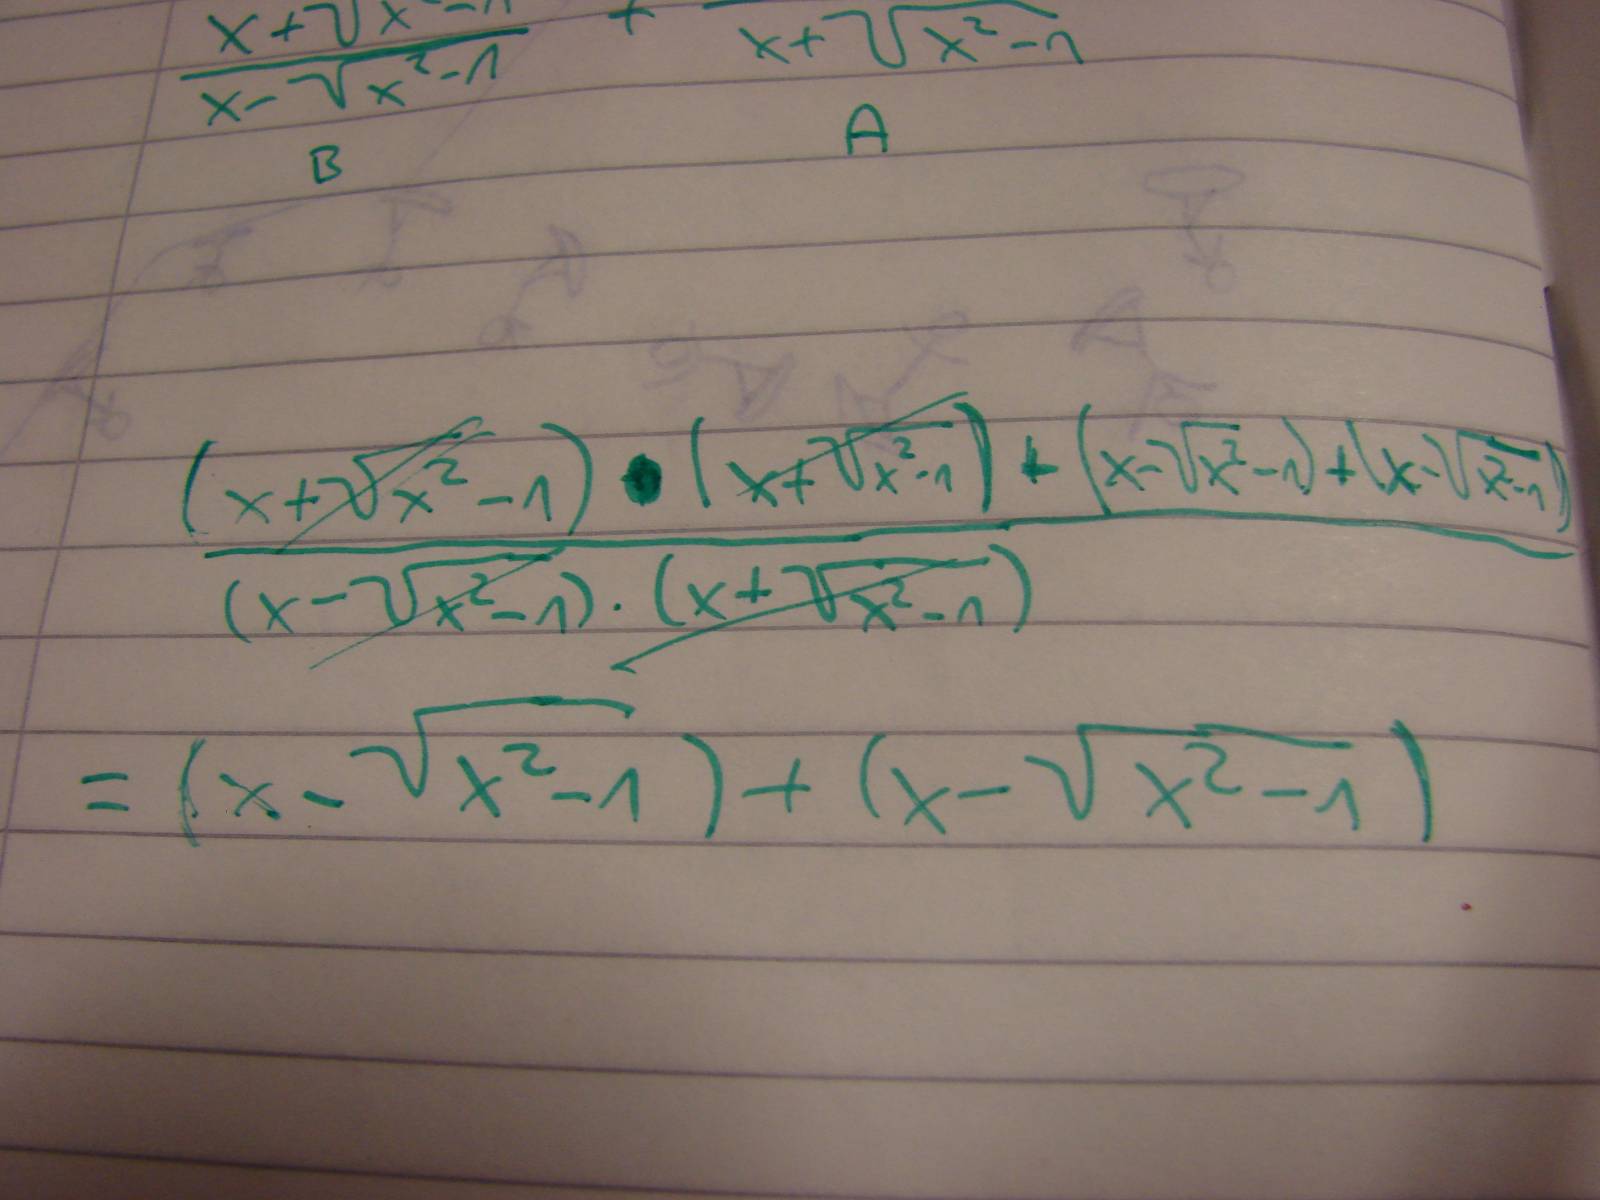 x+√x²-1 +
x-√x²-1 x+√x²-1
B A
(x+√x²-1) • (x+√x²-1) + (x-√x²-1) + (x-√x²-1)
(x-√x²-1) · (x+√x²-1)
= (x-√x²-1) + (x-√x²-1)